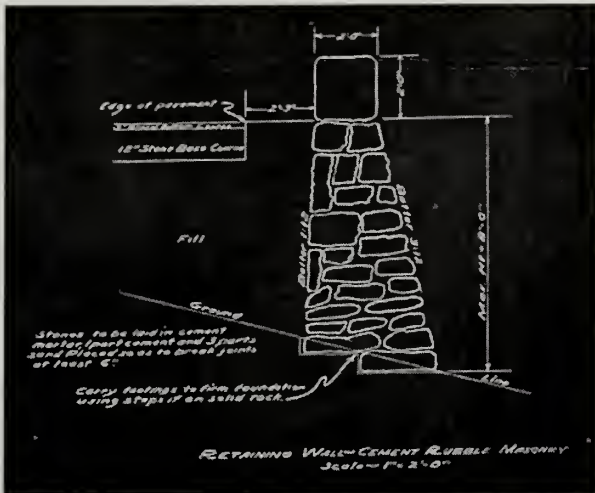 2'-0"
2'-0"
Edge of pavement
2'-3"
12" Stone Base Course
Batter 1:12
Max. Ht. = 8'-0"
Fill
Ground
Line
Stones to be laid in cement
mortar, 1 part cement and 3 parts
sand. Placed so as to break joints
at least 6".
Carry footings to firm foundation
using steps if on solid rock.
RETAINING WALL - CEMENT RUBBLE MASONRY
Scale - 1" = 2'-0"